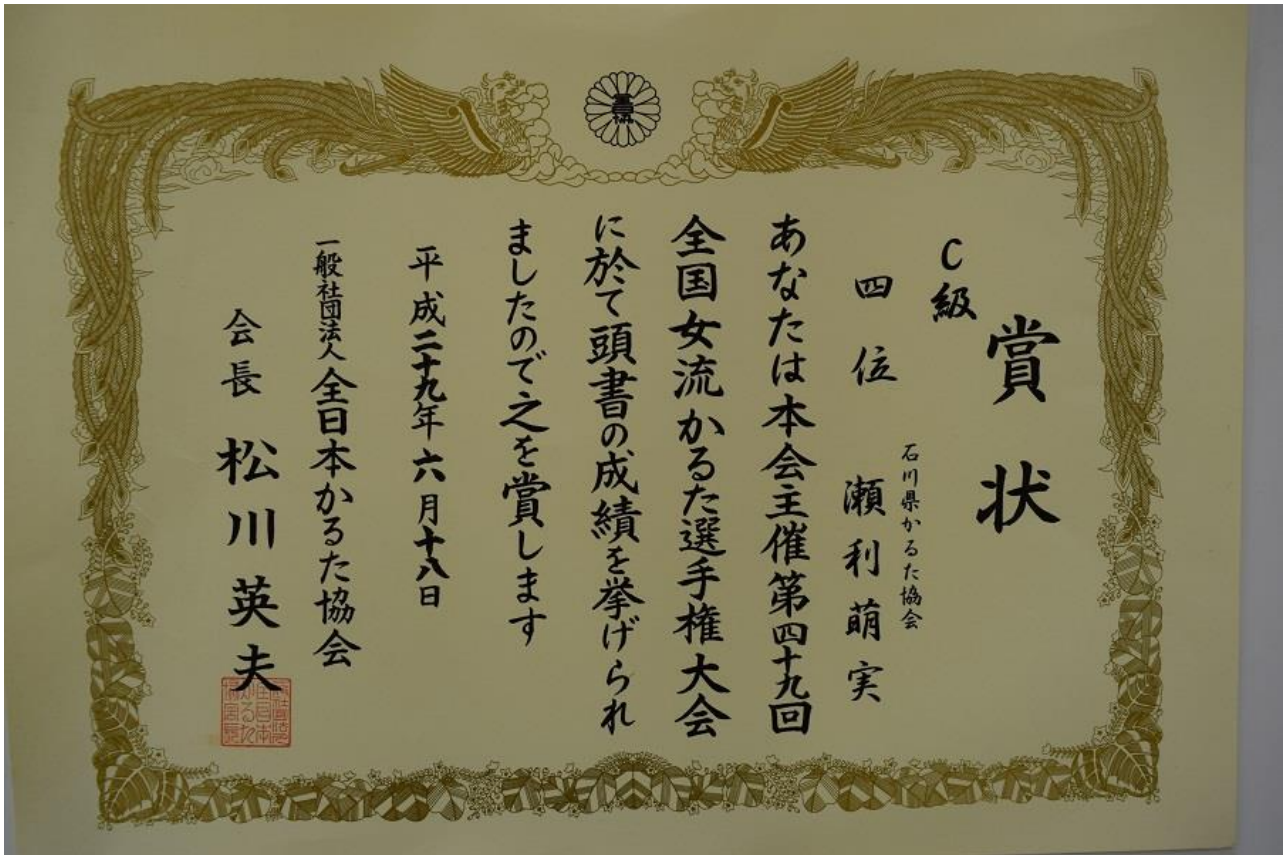 賞状
C級
四位
石川県かるた協会
瀬利萌実
あなたは本会主催第四十九回
全国女流かるた選手権大会
に於て頭書の成績を挙げられ
ましたので之を賞します
平成二十九年六月十八日
一般社団法人全日本かるた協会
会長 松川英夫